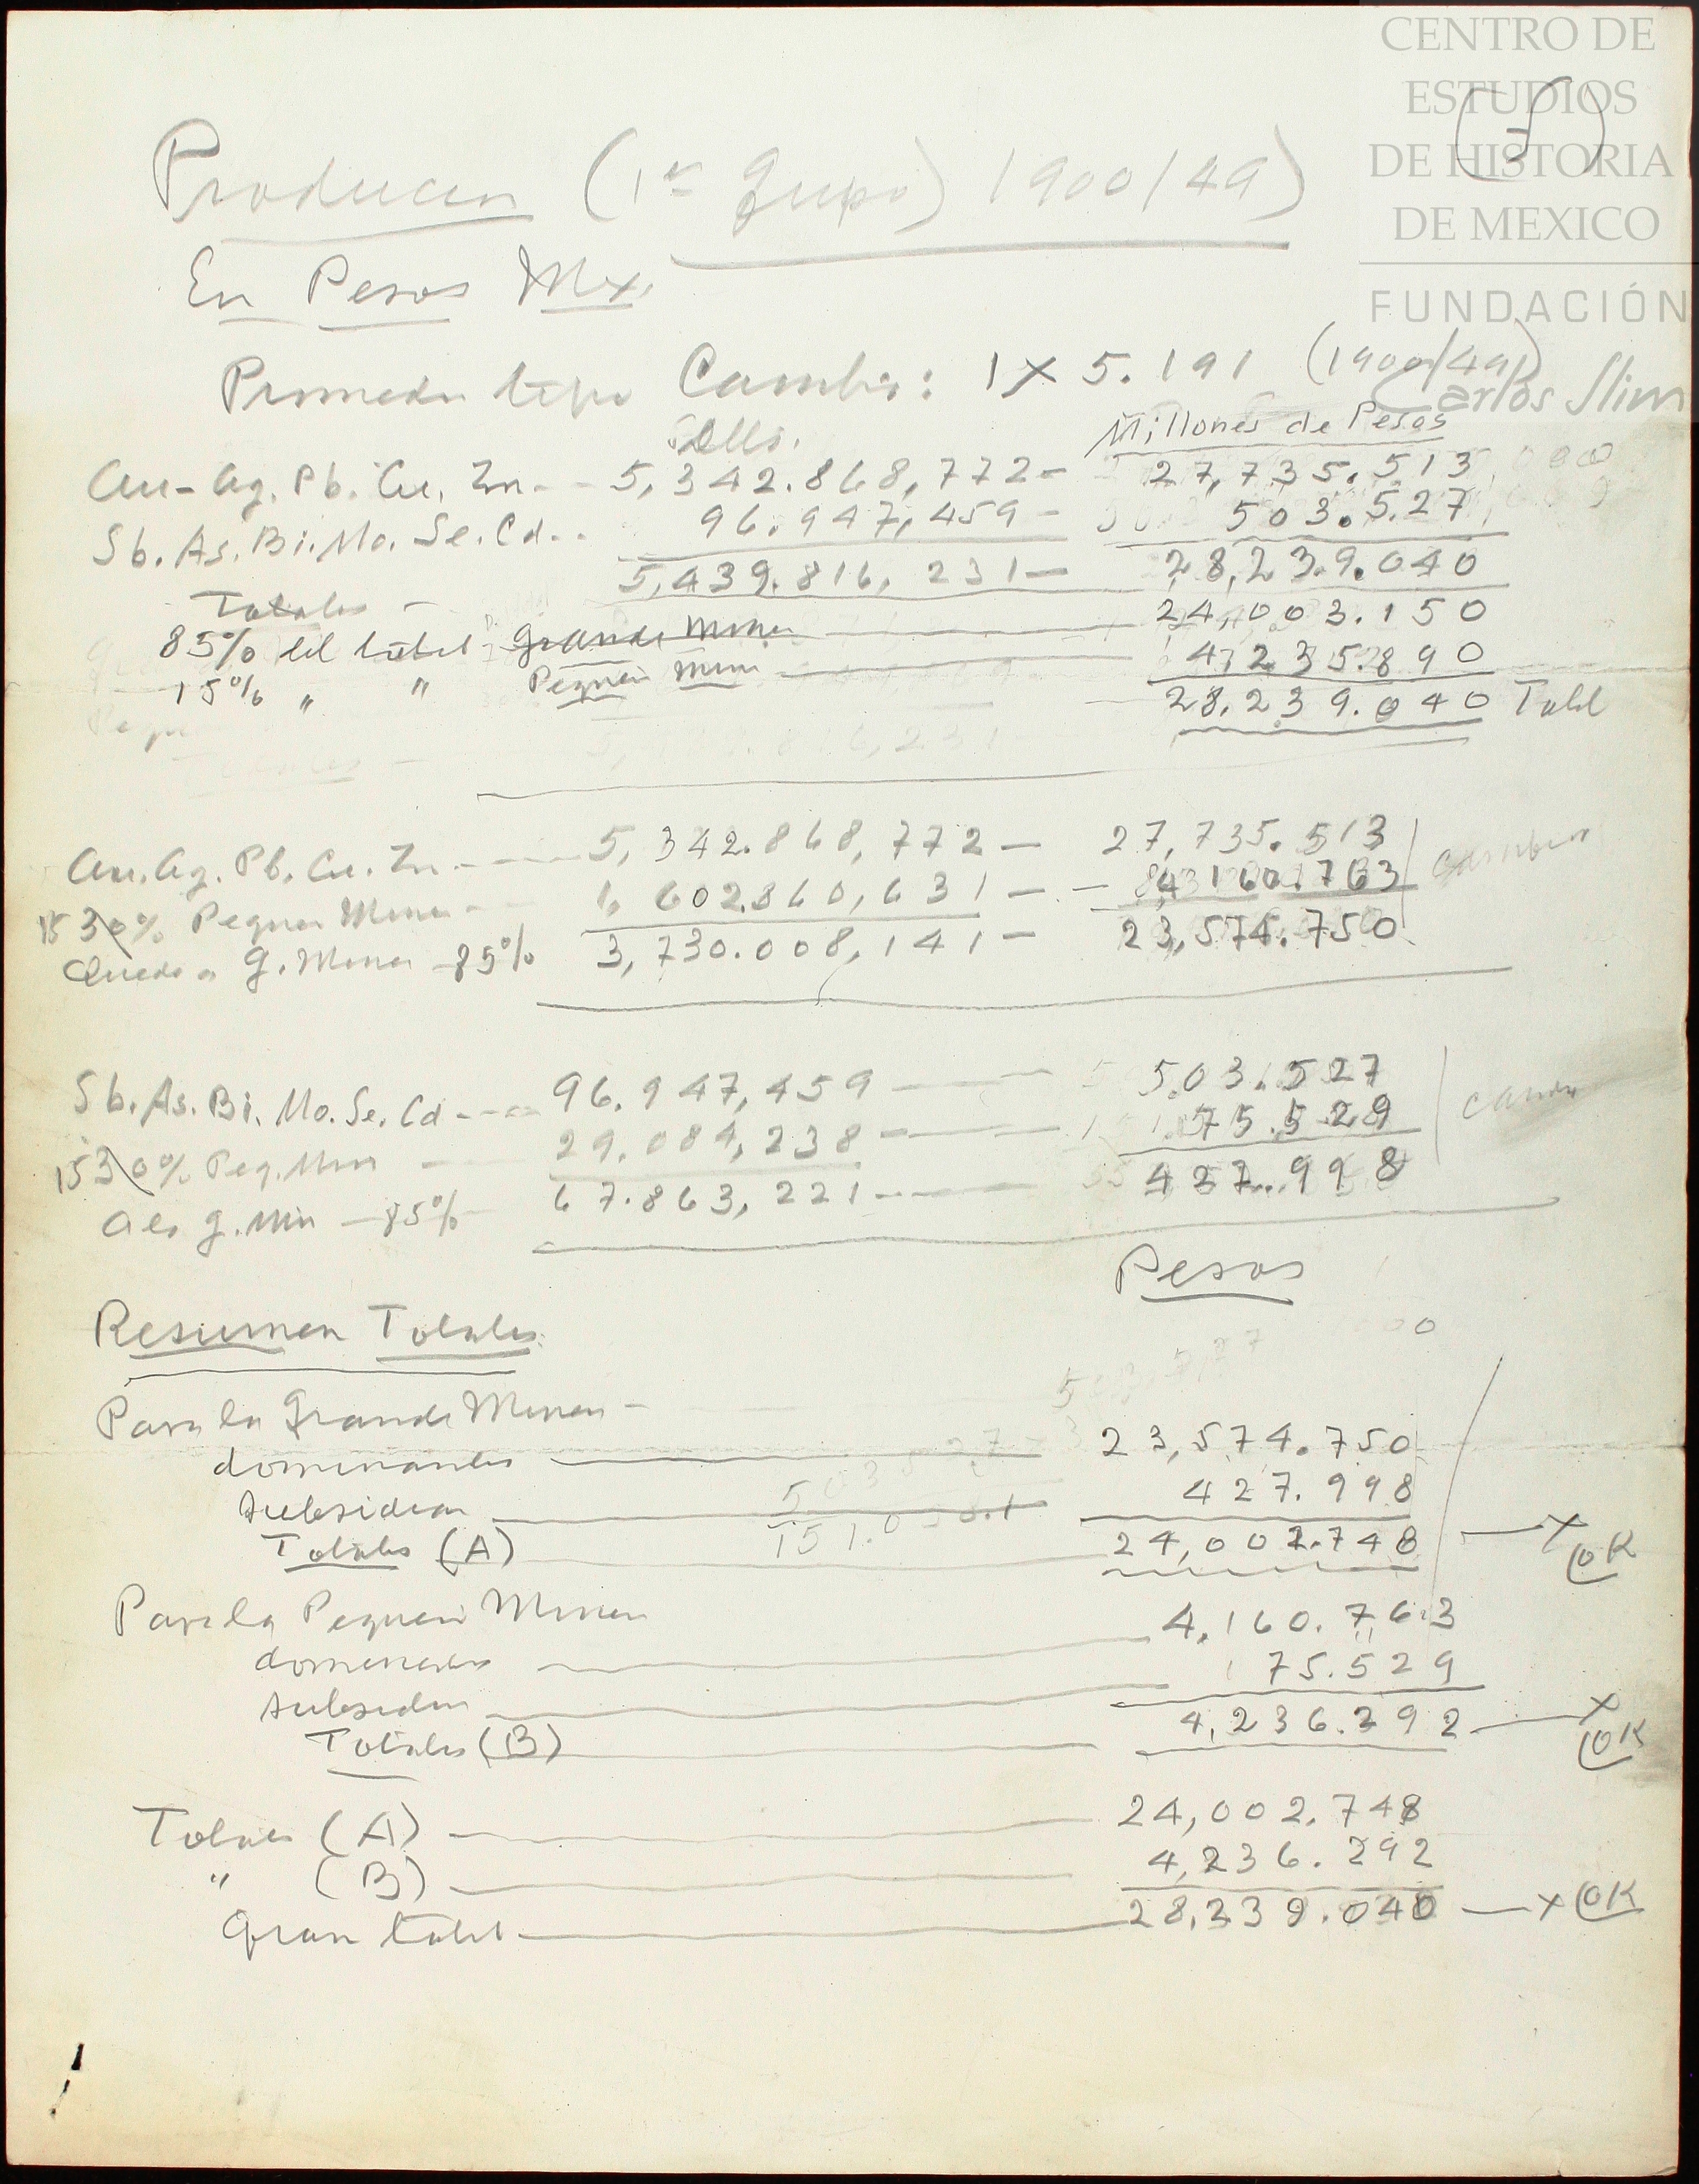 CENTRO DE
ESTUDIOS
DE HISTORIA
DE MEXICO
FUNDACIÓN
Carlos Slim
Produccn (1er Grupo) 1900/49)
En Pesos Mx.
Promedio tipo Cambio: 1 X 5.191 (1900/49)
Dlls. Millones de Pesos
Au-Ag. Pb. Cu. Zn -- 5,342.868,772 - 27,735.513
Sb. As. Bi. Mo. Se. Cd.. 96.947,459 - 503.527
Totales - 5,439.816,231 - 28,239.040
85% del total - Grande Mineria 24,003.150
15% " " Pequeña Mineria 4,235.890
28,239.040 Total
Au. Ag. Pb. Cu. Zn - 5,342.868,772 - 27,735.513
15 30% Pequeña Mineria - 1,602.860,631 - - 4,160.763
Queda a G. Mineria - 85% 3,730.008,141 - 23,574.750
Sb. As. Bi. Mo. Se. Cd - 96.947,459 - 503.527
15 30% Peq. Min - 29.084,238 - 75.529
A la G. Min - 85% 67.863,221 - 427.998
Pesos
Resumen Totales
Para la Grande Mineria -
dominantes 23,574.750
subsidiar 427.998
Totales (A) 24,002.748 x OK
Para la Pequeña Mineria
dominantes 4,160.763
subsidiar 75.529
Totales (B) 4,236.292 x OK
Totales (A) 24,002.748
" (B) 4,236.292
Gran total 28,239.040 - x OK